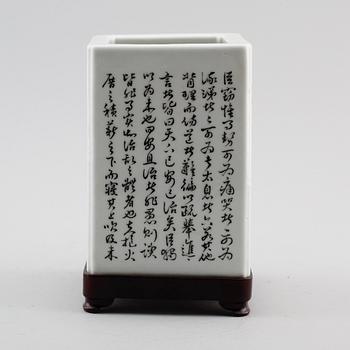 臣竊惟事勢可為痛哭者一可為
流涕者二可為長太息者六若其他
背理而傷道者難徧以疏舉進
言者皆曰天下已安已治矣臣獨
以為未也曰安且治者非愚則諛
皆非事實知治亂之體者也夫抱火
厝之積薪之下而寢其上火